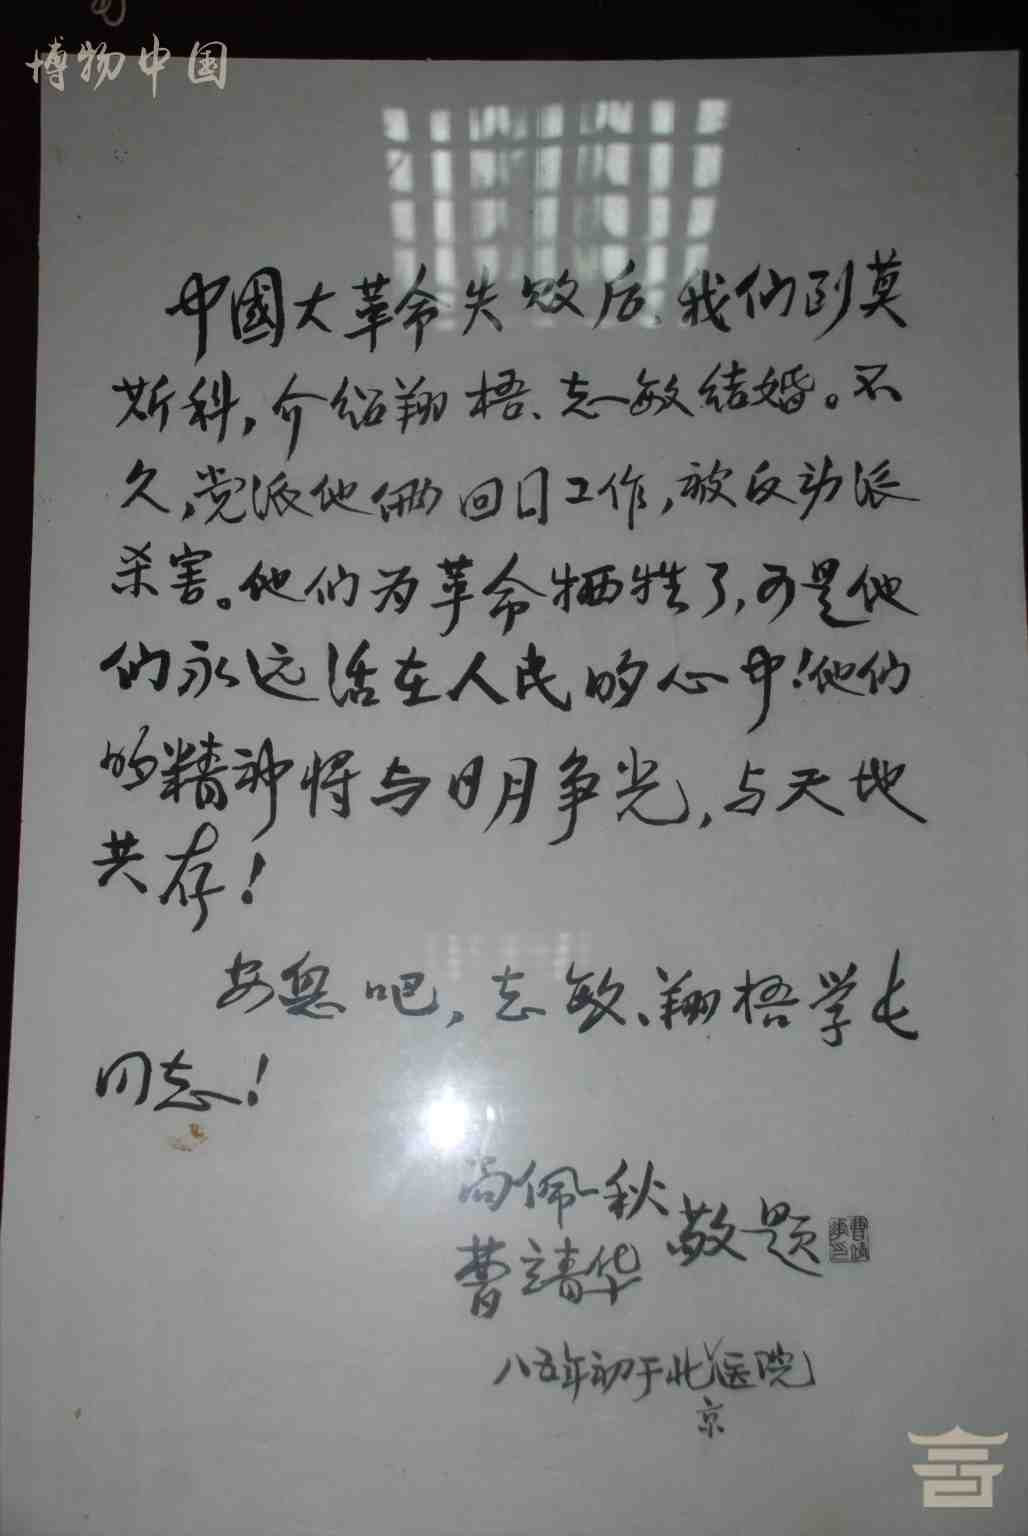 博物中国
中國大革命失败后、我们到莫
斯科，介绍翔梧、志敏结婚。不
久，党派他俩回国工作，被反动派
杀害。他们为革命牺牲了，可是他
们永远活在人民的心中！他们
的精神将与日月争光，与天地
共存！
安息吧，志敏、翔梧学长
同志！
尚佩秋
曹靖华 敬题
曹靖华印
八五年初于北医院
京